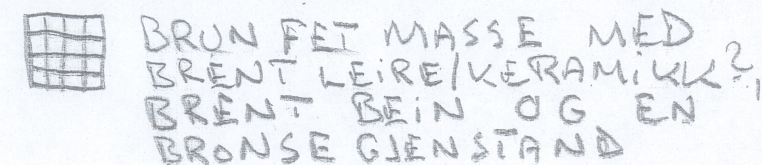 BRUN FET MASSE MED
BRENT LEIRE/KERAMIKK?,
BRENT BEIN OG EN
BRONSE GJENSTAND